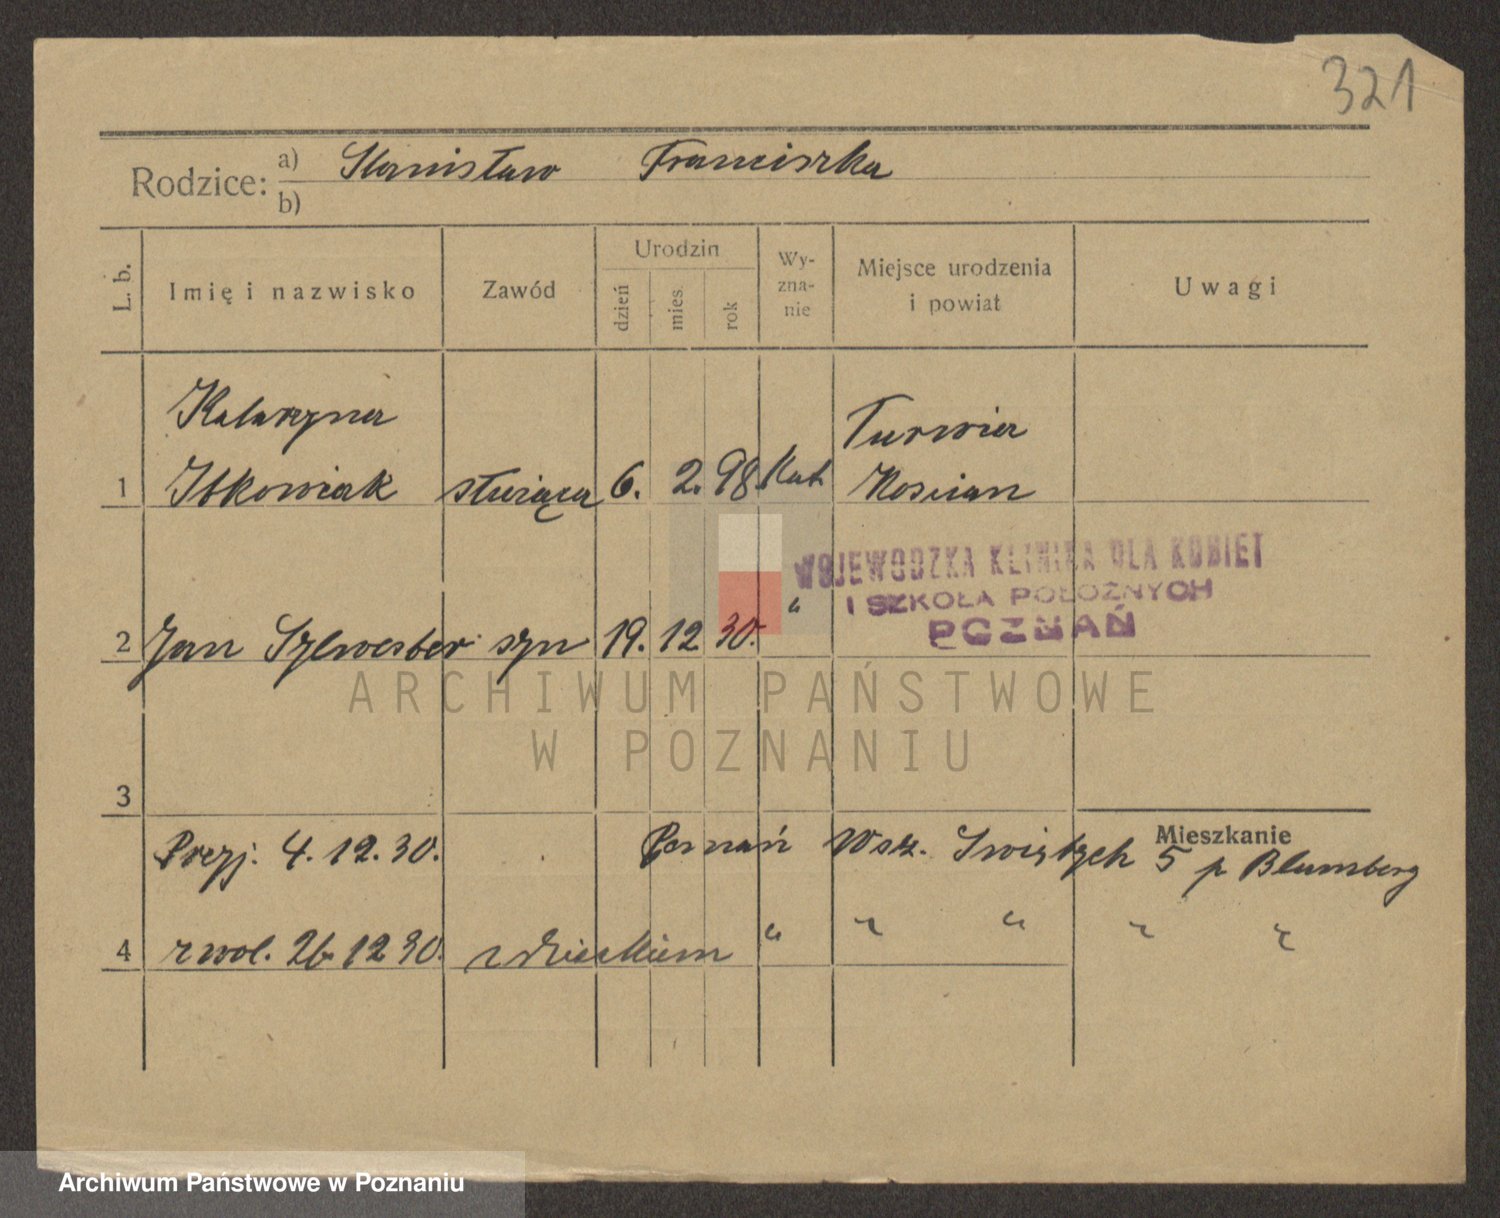 321
Rodzice: a) Stanisław Franciszka
b)
L. b. Imię i nazwisko Zawód Urodzin dzień mies. rok Wy-zna-nie Miejsce urodzenia i powiat Uwagi
Katarzyna Turwia
1 Itkowiak służąca 6. 2. 98 Kat. Kościan
WOJEWODZKA KLINIKA DLA KOBIET
I SZKOŁA POŁOŻNYCH
POZNAŃ
2 Jan Sylwester syn 19. 12. 30. "
ARCHIWUM PAŃSTWOWE
W POZNANIU
3
Mieszkanie
Przyj. 4. 12. 30. Poznań Wsz. Świętych 5 p Blumberg
4 zwol. 26 12 30. z dzieckiem " " " " "
Archiwum Państwowe w Poznaniu